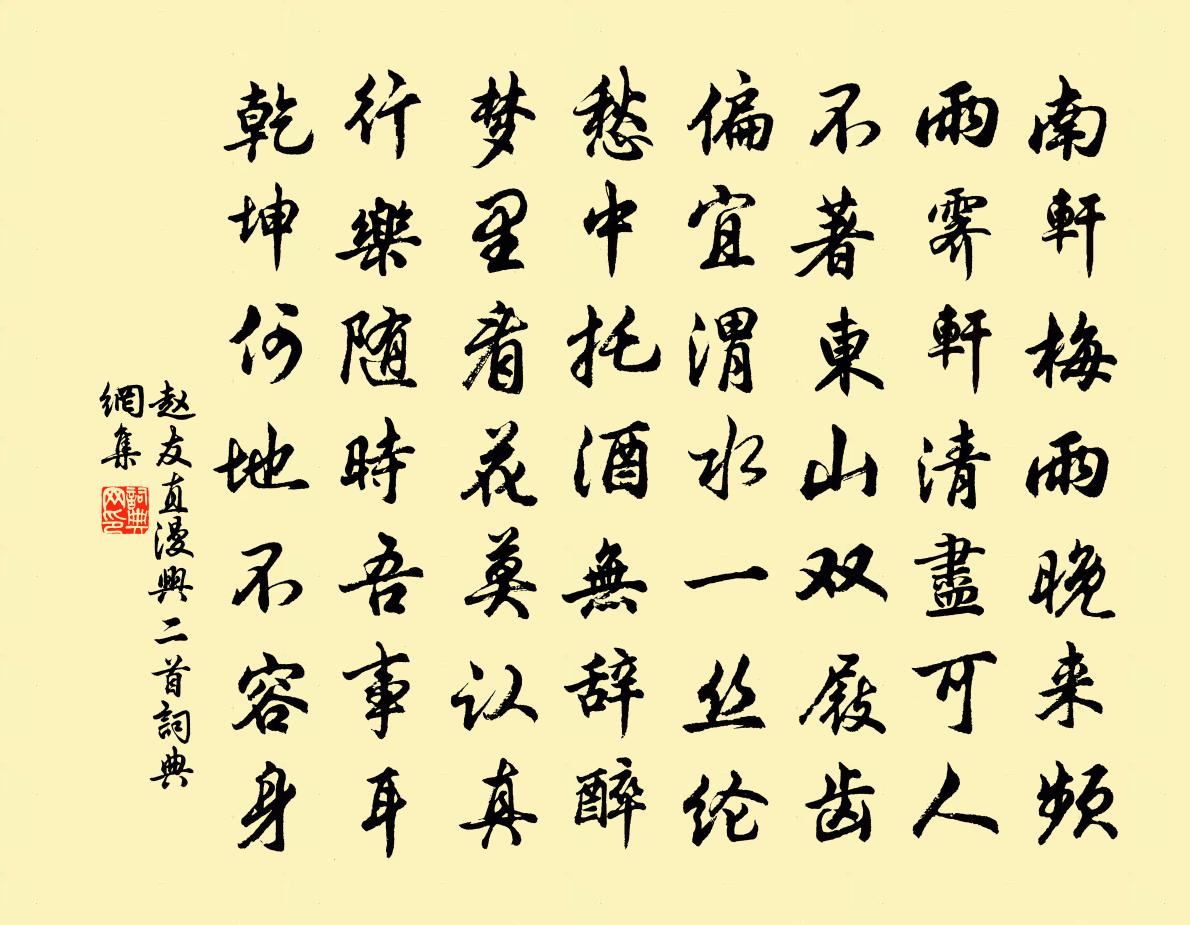 南軒梅雨晚来频
雨霁軒清盡可人
不著東山双屐齿
偏宜渭水一丝纶
愁中托酒無辞醉
梦里看花莫认真
行樂随時吾事耳
乾坤何地不容身
赵友直漫興二首詞典
網集
詞典
网印